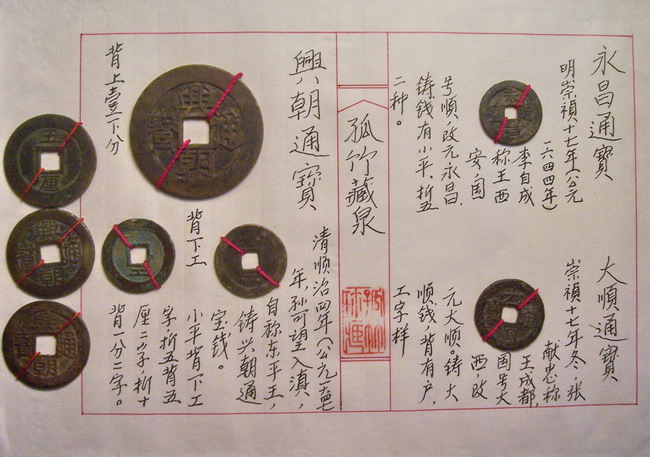 永昌通寶
明崇禎十七年(公元
六四四年)
李自成
称王西
安,国
号順,改元永昌,
铸钱有小平、折五
二种。
大順通寶
崇禎十七年冬,张
献忠称
王成都,
国号大
西,改
元大顺。铸大
顺钱,背有户,
工字样
孤竹藏泉
興朝通寶
清顺治四年(公元一六四七
年,孙可望入滇,
自称东平王,
铸兴朝通
宝钱。
小平背下工
字,折五背五
厘二字,折十
背一分二字。
背下工
背上壹下分
興朝通寶
五厘
興朝通寶
興朝通寶
工